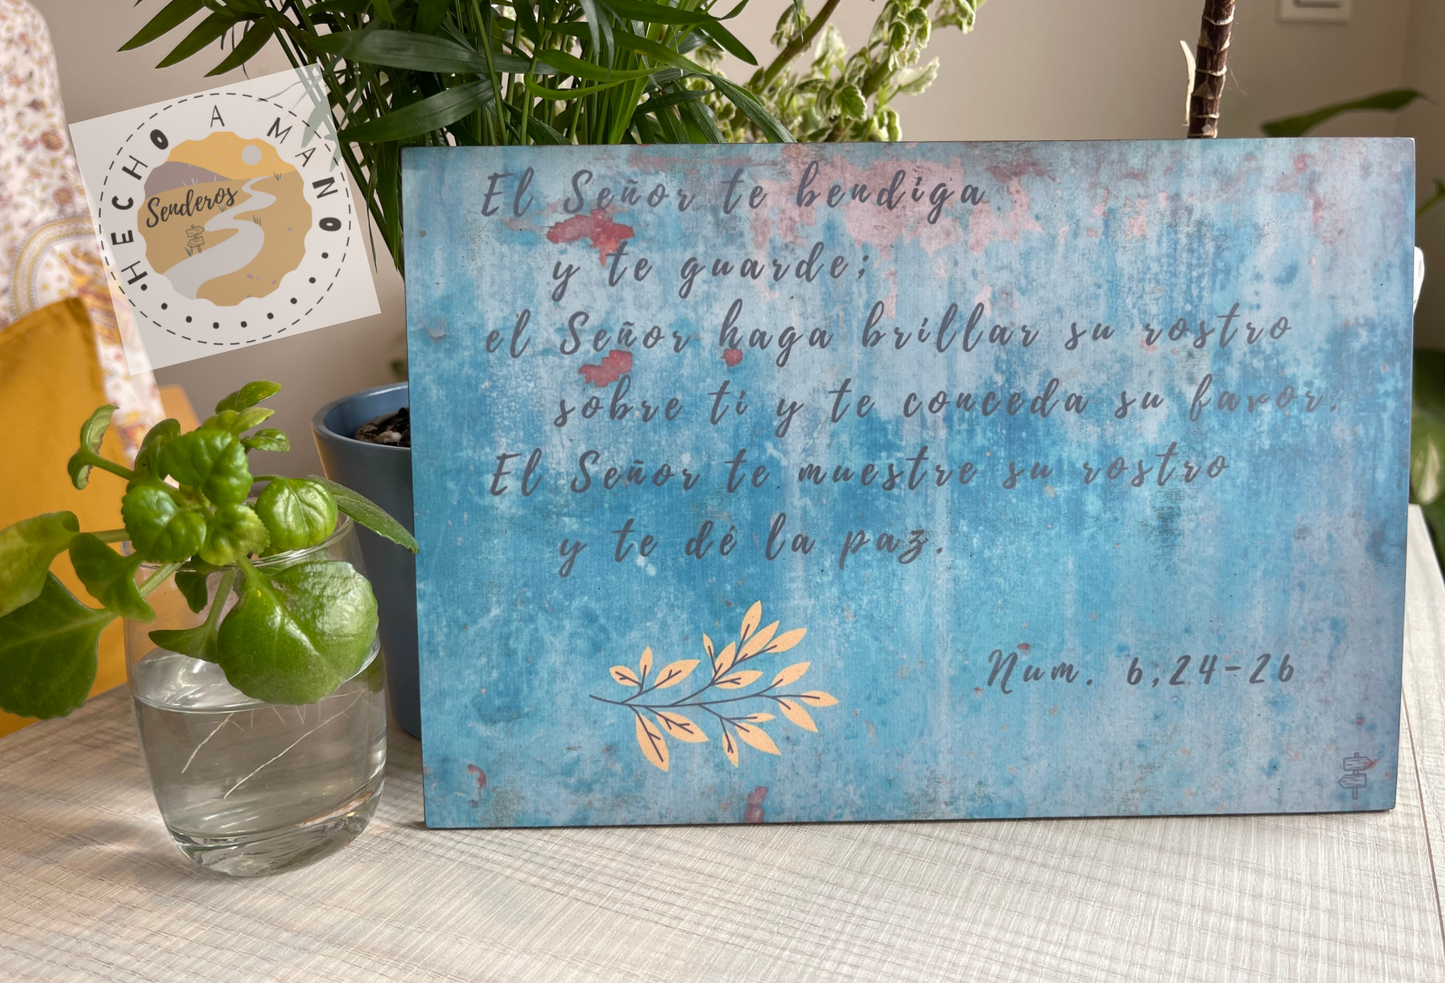 HECHO A MANO
Senderos
El Señor te bendiga
y te guarde;
el Señor haga brillar su rostro
sobre ti y te conceda su favor.
El Señor te muestre su rostro
y te dé la paz.
Num. 6,24-26